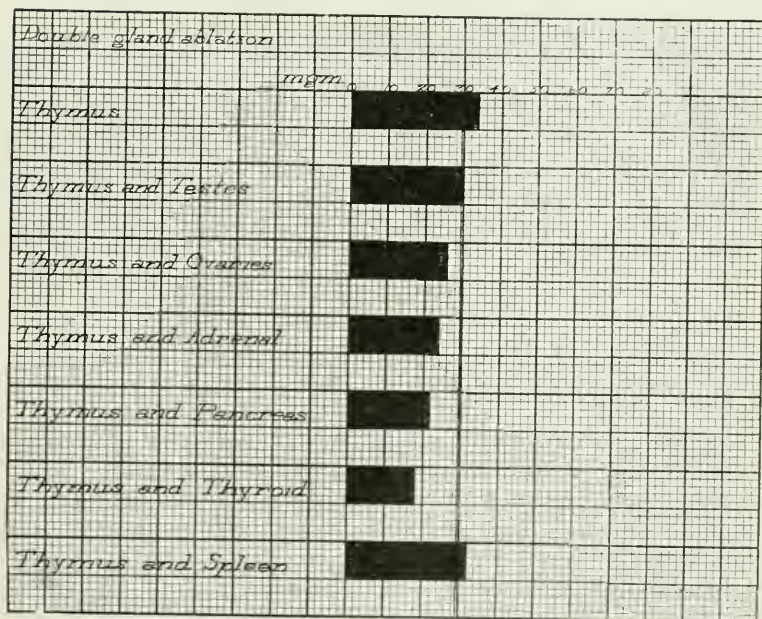 Double gland ablation
mgm. 0 10 20 30 40 50 60 70 80
Thymus
Thymus and Testes
Thymus and Ovaries
Thymus and Adrenal
Thymus and Pancreas
Thymus and Thyroid
Thymus and Spleen